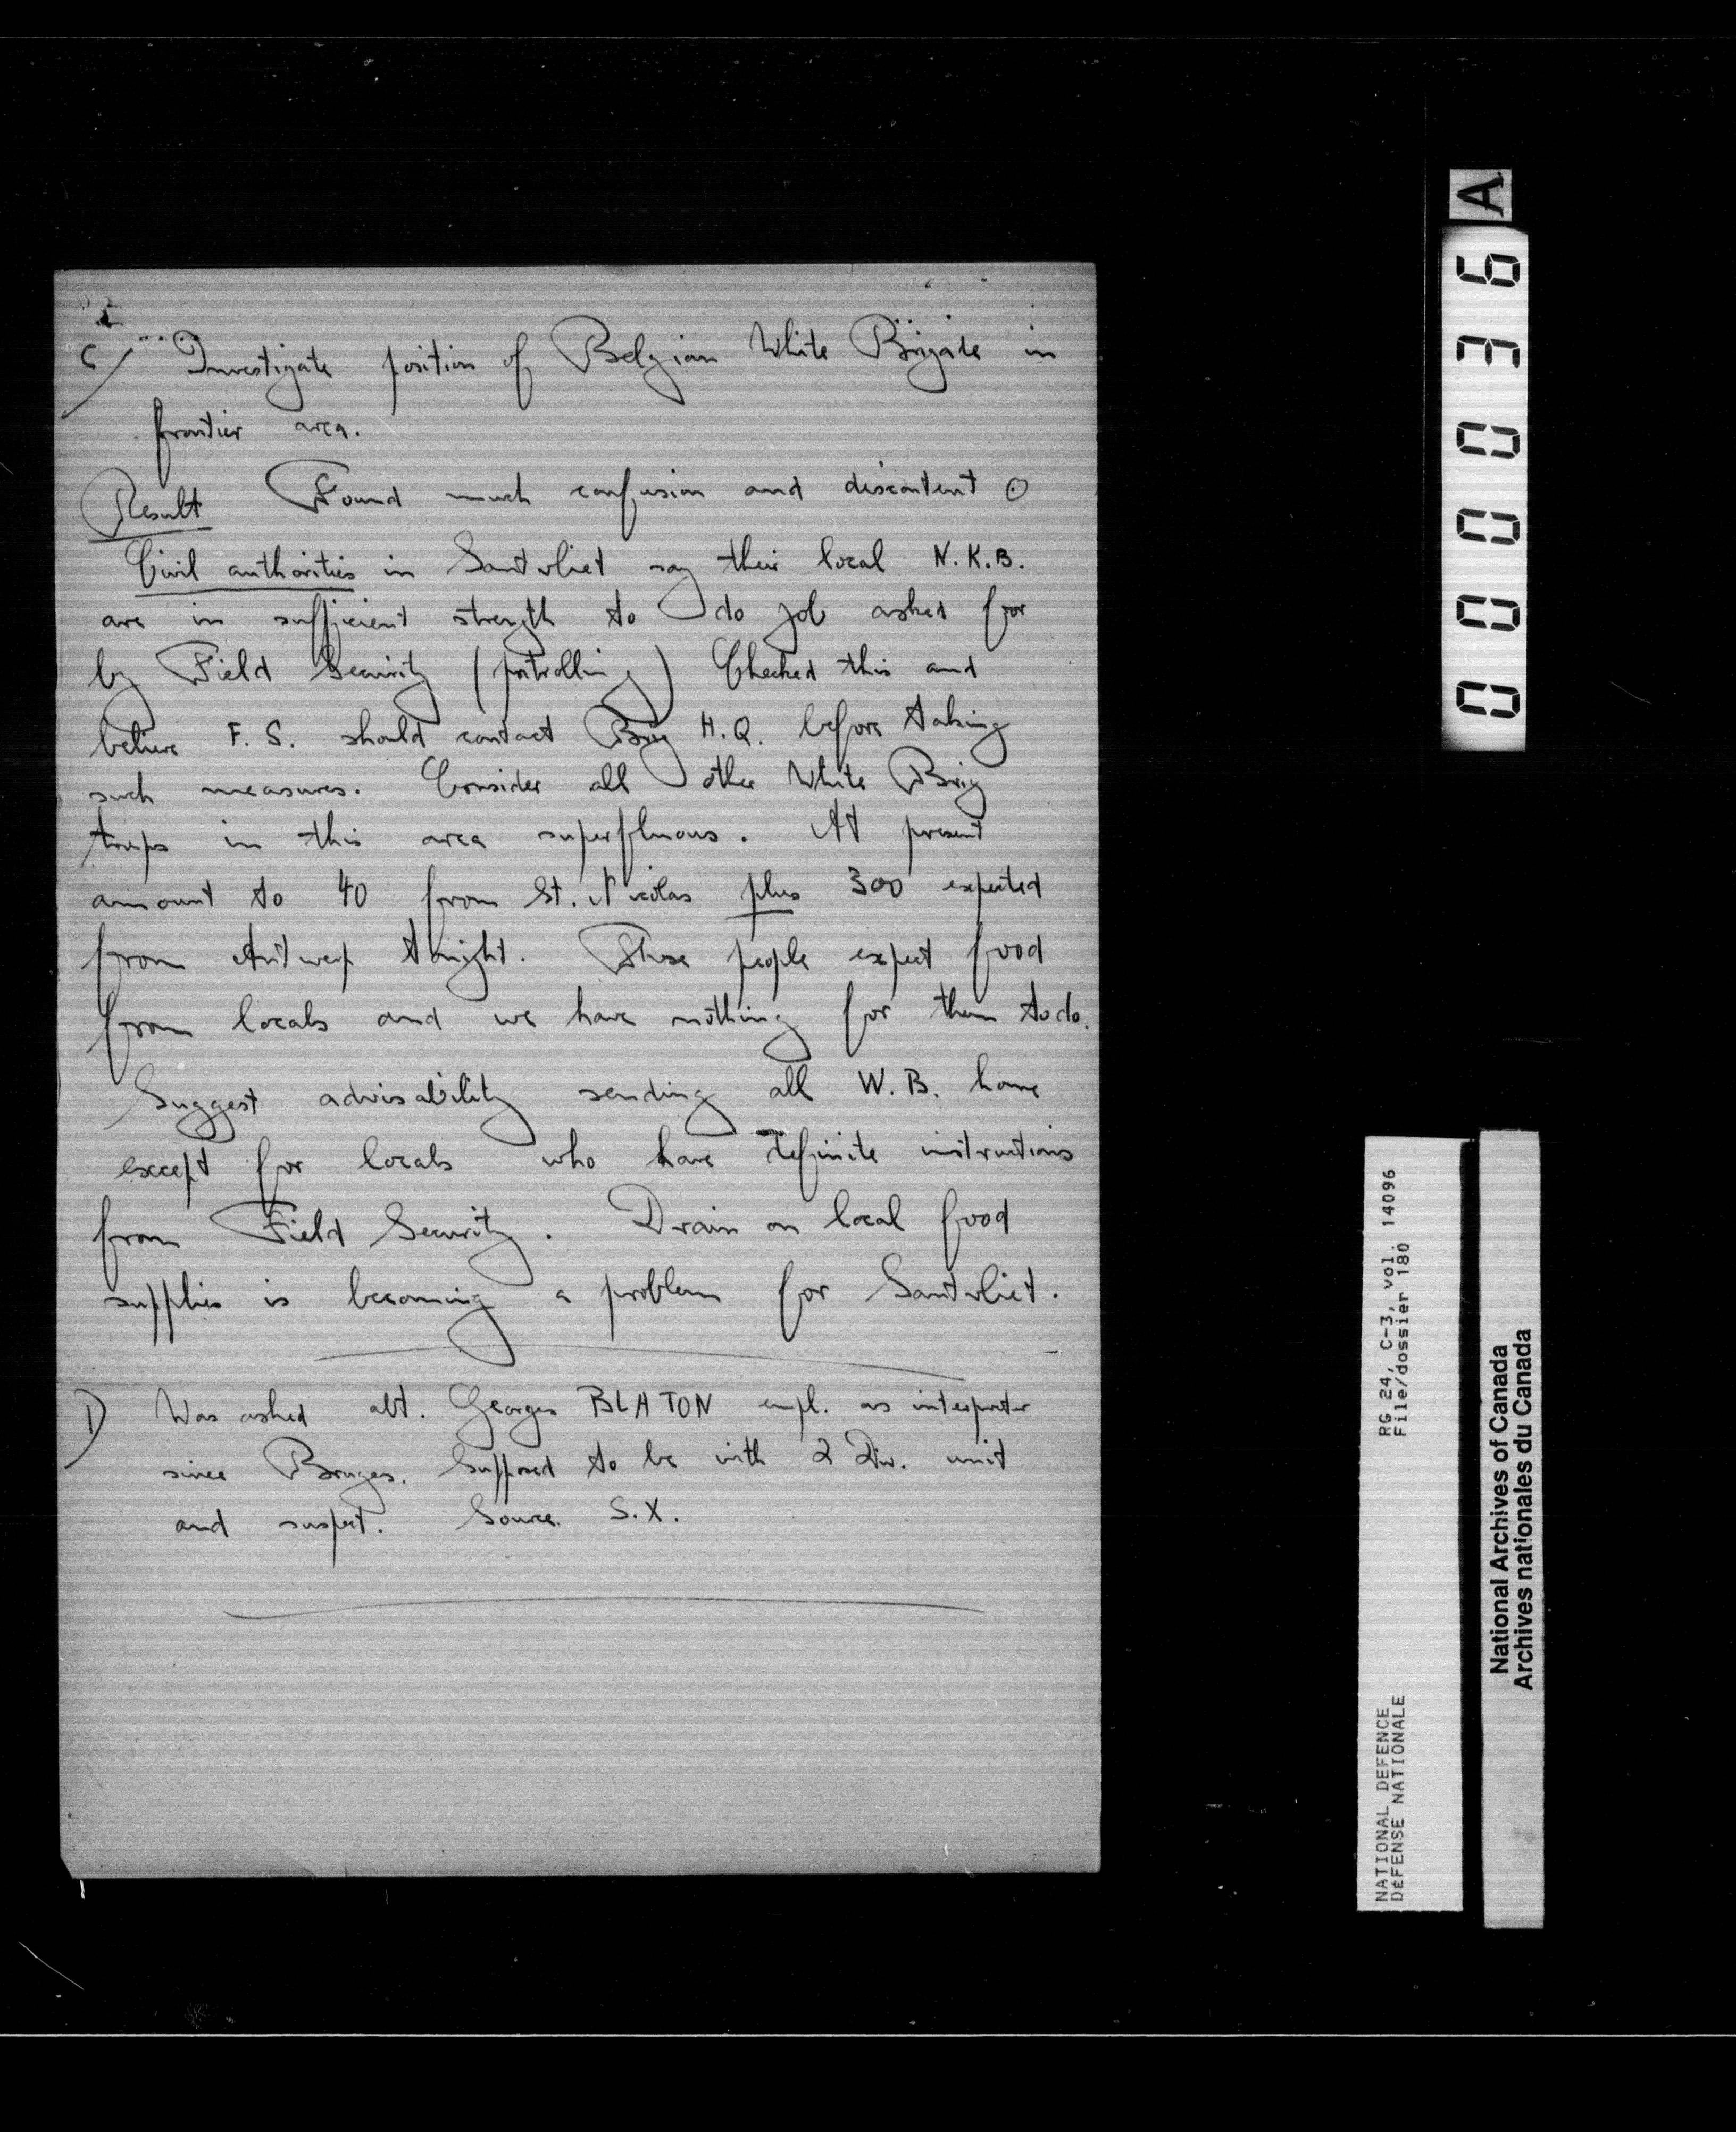 C/ Investigate position of Belgian White Brigade in
frontier area.
Result Found much confusion and discontent ⊙
Civil authorities in Santvliet say their local N.K.B.
are in sufficient strength to do job asked for
by Field Security (patrolling) Checked this and
believe F. S. should contact Brig H.Q. before taking
such measures. Consider all other White Brig
troops in this area superfluous. At present
amount to 40 from St. Nicolas plus 300 expected
from Antwerp tonight. These people expect food
from locals and we have nothing for them to do.
Suggest advisability sending all W.B. home
except for locals who have definite instructions
from Field Security. Drain on local food
supplies is becoming a problem for Santvliet.
D) Was asked abt. Georges BLATON empl. as interpreter
since Bruges. Supposed to be with 2 Div. unit
and suspect. Source S.X.
000036 A
RG 24, C-3, vol. 14096
File/dossier 180
NATIONAL DEFENCE
DÉFENSE NATIONALE
National Archives of Canada
Archives nationales du Canada